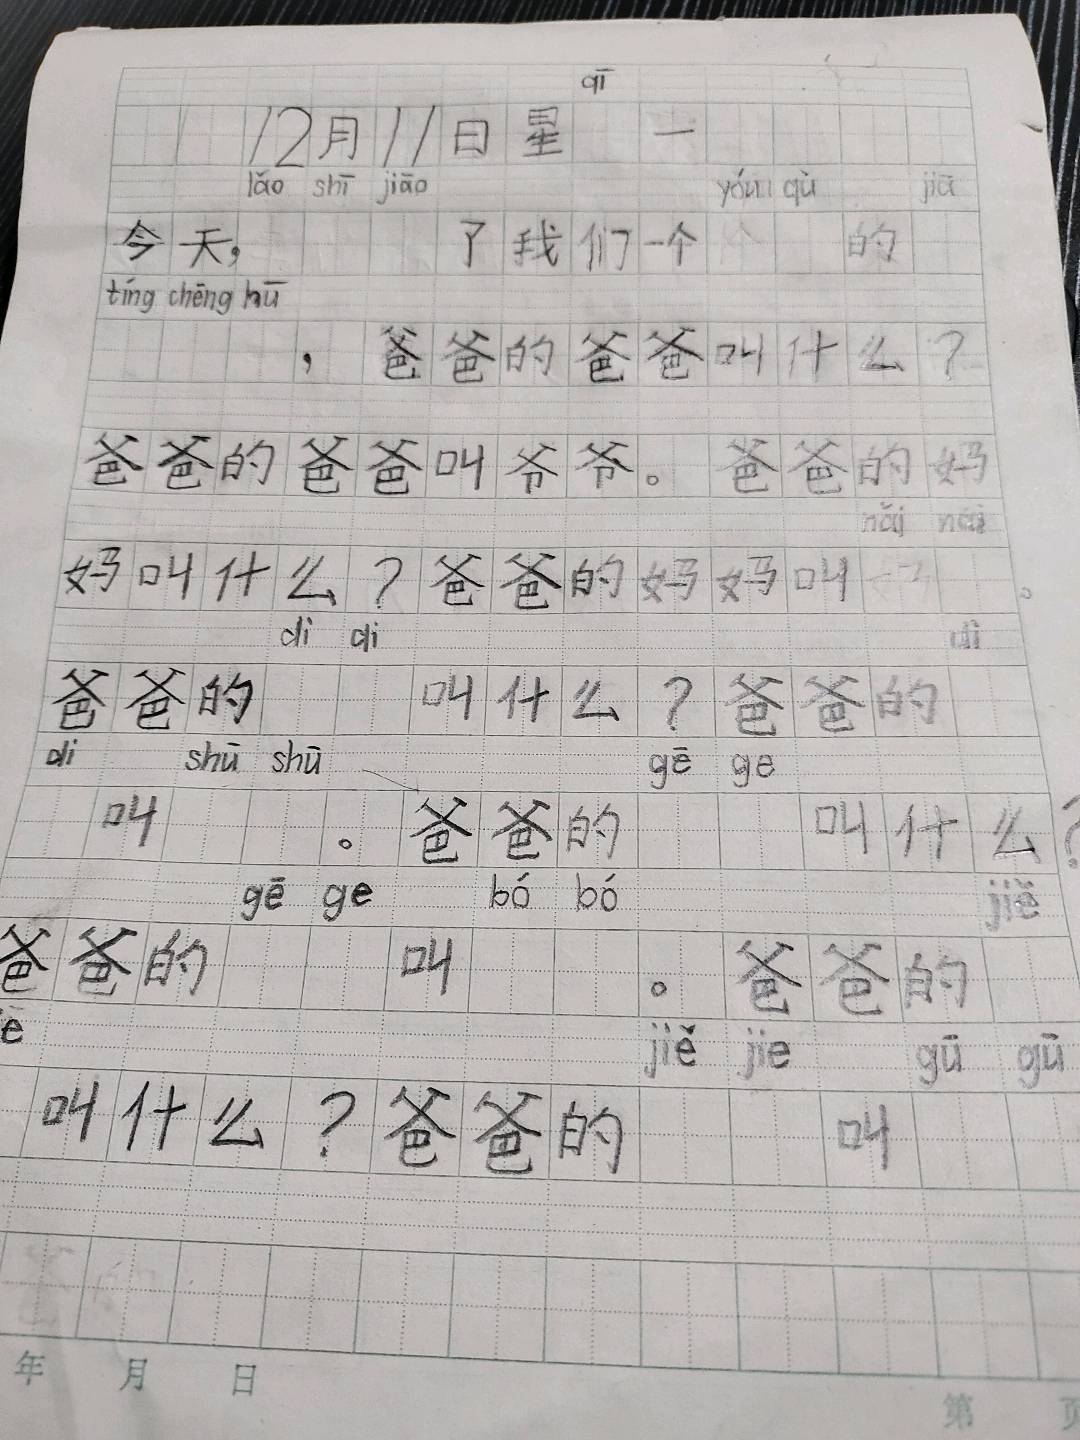 qī
12月11日星 一
lǎo shī jiāo yóu qù jiā
今天, 了我们一个 的
tíng chēng hū
, 爸爸的爸爸叫什么?
爸爸的爸爸叫爷爷。爸爸的妈
nǎi nai
妈叫什么?爸爸的妈妈叫 。
dì di dì
爸爸的 叫什么?爸爸的
di shū shū gē ge
叫 。爸爸的 叫什么?
gē ge bó bó jiě
爸爸的 叫 。爸爸的
jiě jie gū gū
叫什么?爸爸的 叫
年 月 日
第 页